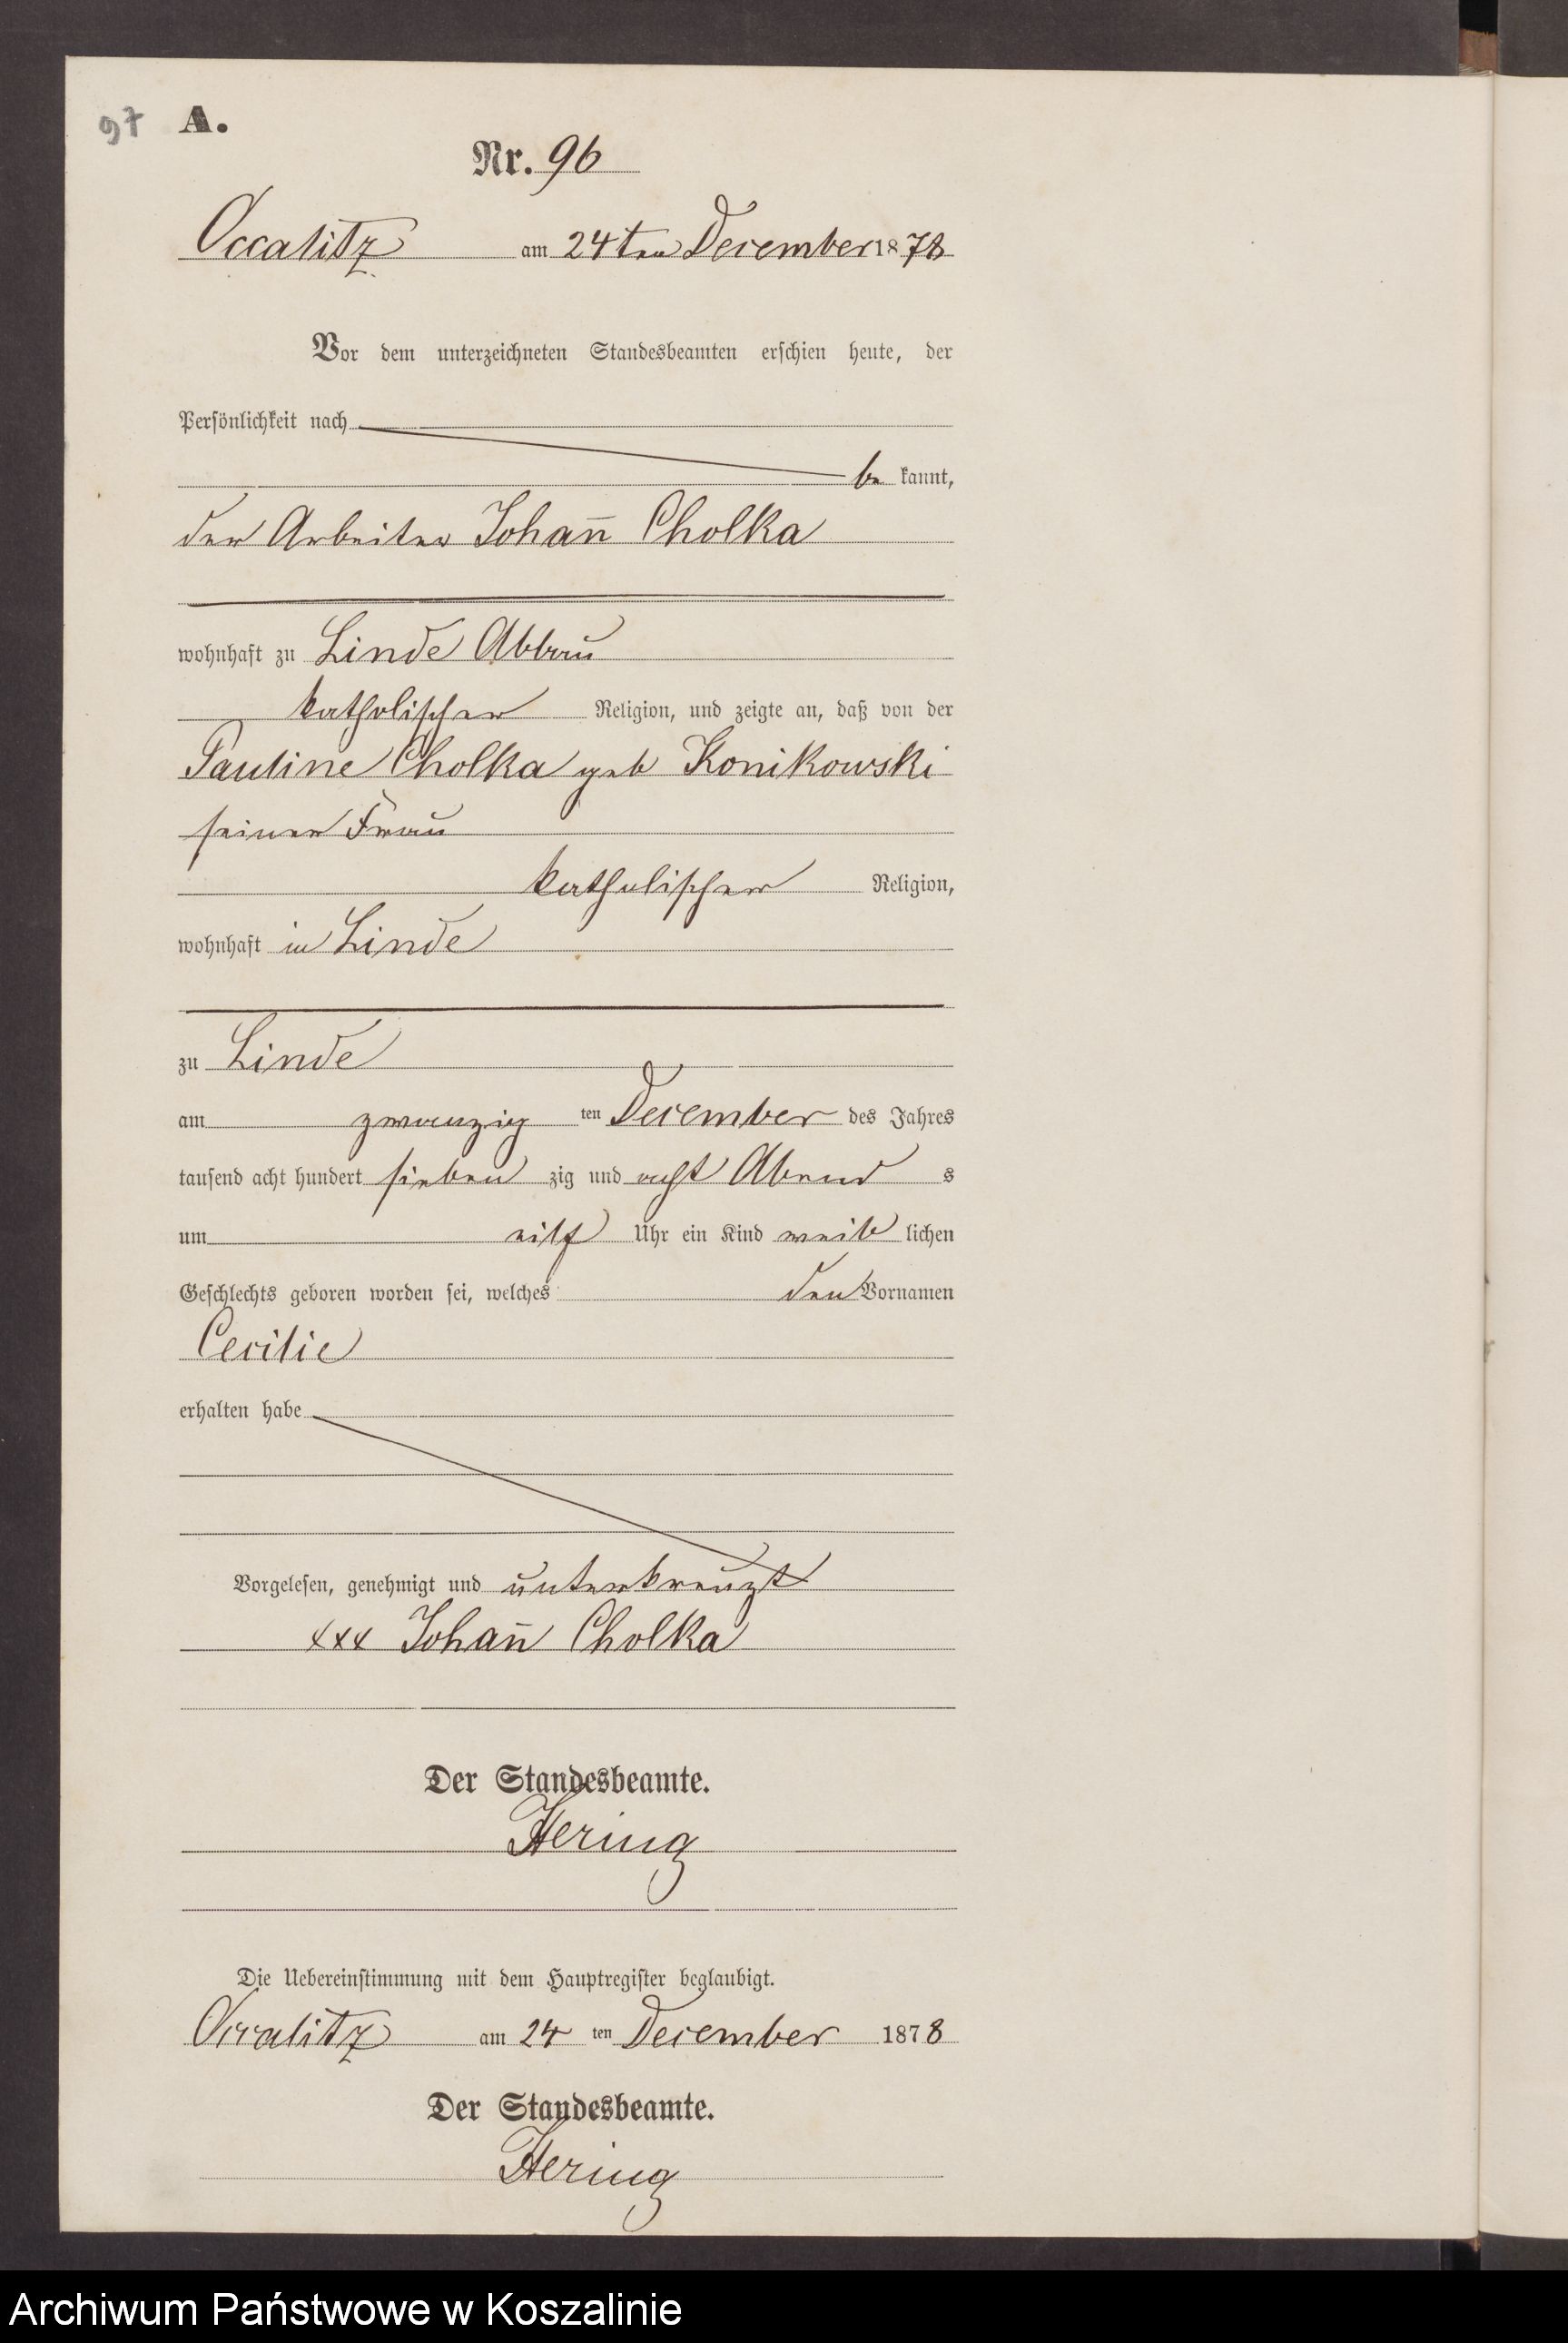 97 A.
Nr. 96
Occalitz am 24ten December 1878
Vor dem unterzeichneten Standesbeamten erschien heute, der
Persönlichkeit nach
be kannt,
der Arbeiter Johan̄ Cholka
wohnhaft zu Linde Abbau
katholischer Religion, und zeigte an, daß von der
Pauline Cholka geb Konikowski
seiner Frau
katholischer Religion,
wohnhaft in Linde
zu Linde
am zwanzig ten December des Jahres
tausend acht hundert sieben zig und acht Abend s
um eilf Uhr ein Kind weib lichen
Geschlechts geboren worden sei, welches den Vornamen
Cecilie
erhalten habe
Vorgelesen, genehmigt und unterkreuzt
xxx Johan̄ Cholka
Der Standesbeamte.
Hering
Die Uebereinstimmung mit dem Hauptregister beglaubigt.
Occalitz am 24 ten December 1878
Der Standesbeamte.
Hering
Archiwum Państwowe w Koszalinie